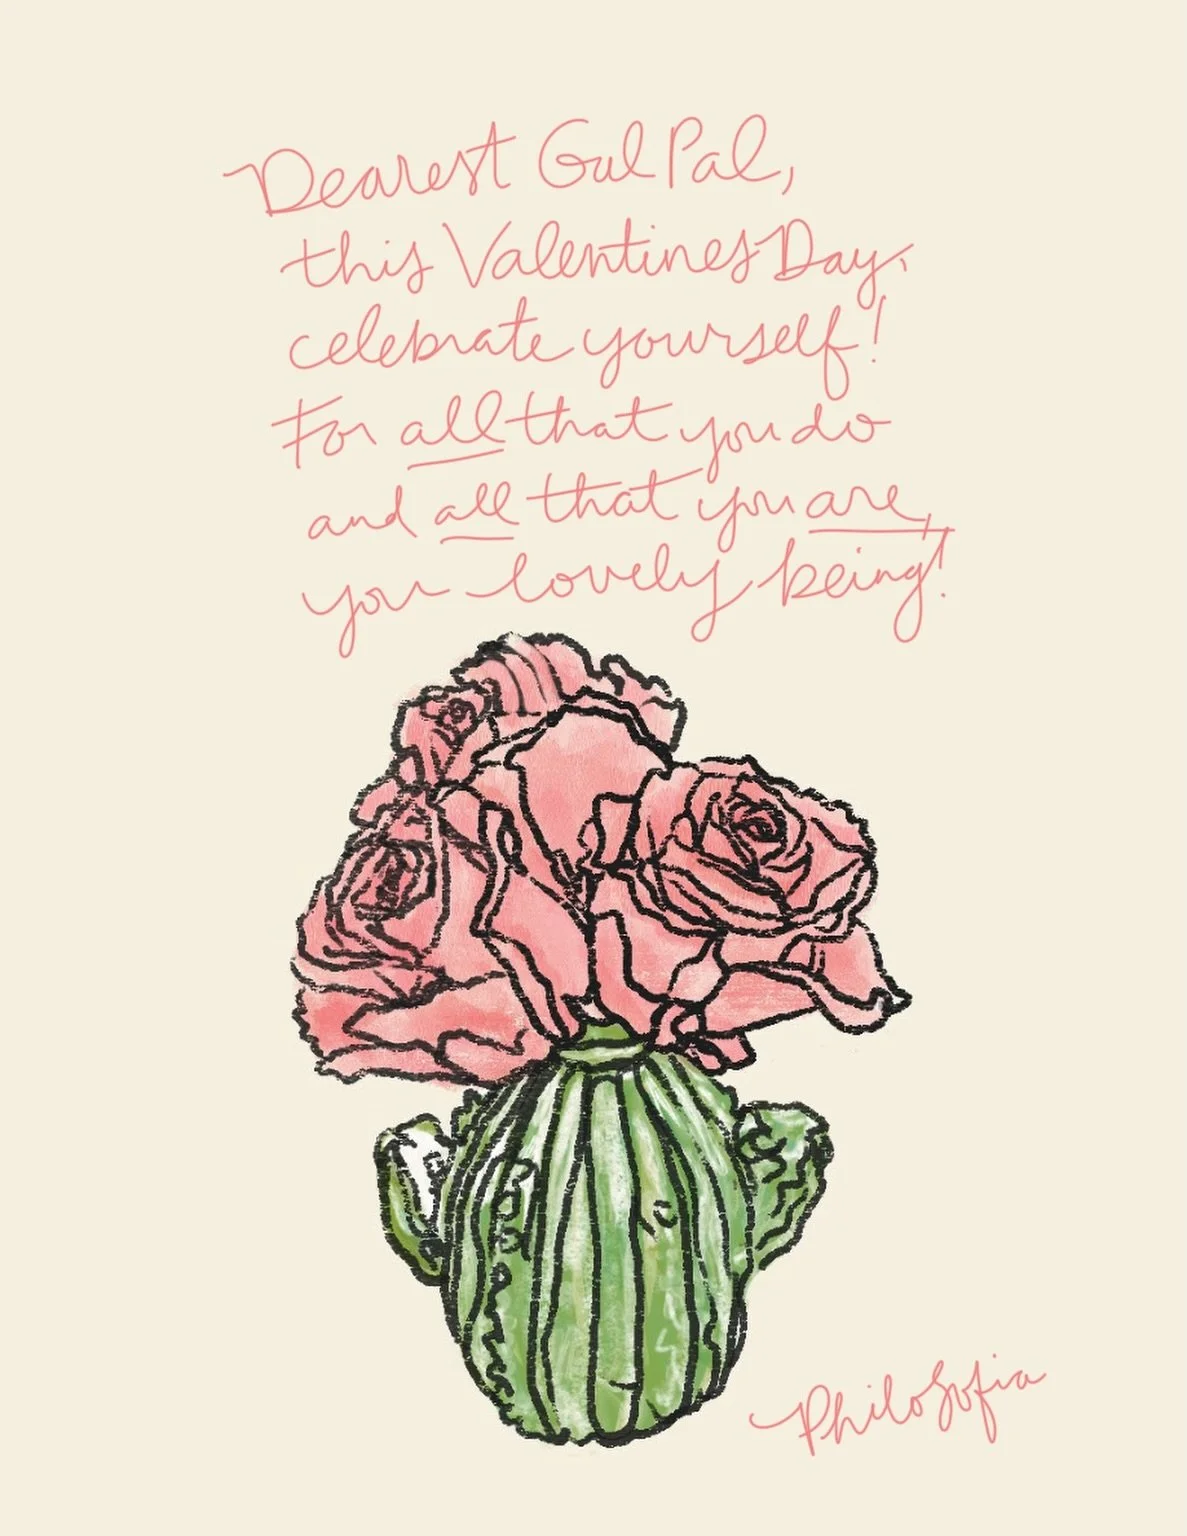 Dearest Gal Pal,
this Valentines Day,
celebrate yourself!
For all that you do
and all that you are,
you lovely being!
PhiloSofia